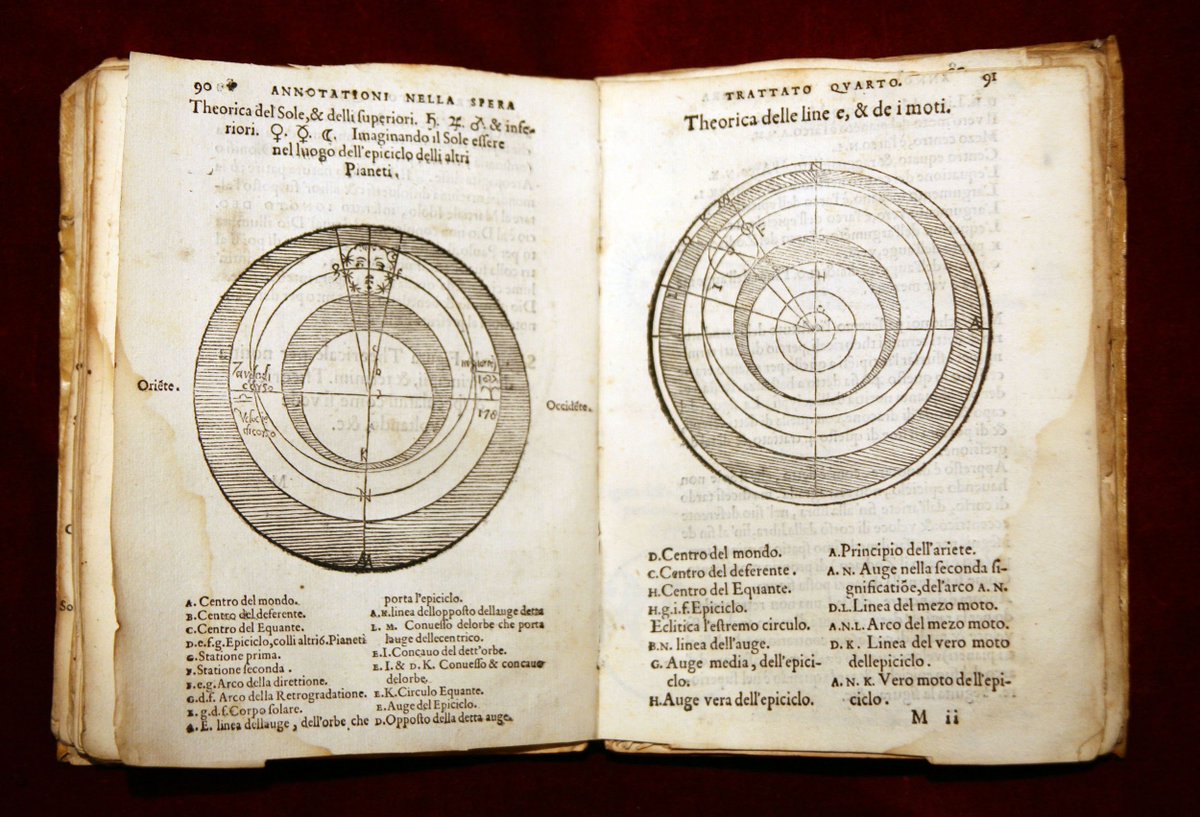 90
ANNOTATIONI NELLA SPERA
Theorica del Sole, & delli superiori. ♄ ♃ ♂ & infe-
riori. ♀ ☿ ☾. Imaginando il Sole essere
nel luogo dell'epiciclo delli altri
Pianeti.
Oriẽte.
Occidẽte.
Velocie
dicorso
A. Centro del mondo.
B. Centro del deferente.
C. Centro del Equante.
D.e.f.g. Epiciclo, colli altri6. Pianeti
G. Statione prima.
F. Statione seconda.
F.e.g. Arco della direttione.
G.d.f. Arco della Retrogradatione.
E.g.d.f. Corpo solare.
A. E. linea dellauge, dell'orbe che
porta l'epiciclo.
A.N. linea dellopposto dellauge detta
L. M. Conuesso delorbe che porta
lauge delleccentrico.
E.I. Concauo del dett'orbe.
E. I. & D. K. Conuesso & concauo
delorbe.
E.K. Circulo Equante.
E. Auge del Epiciclo.
D. Opposto della detta auge.
TRATTATO QVARTO.
91
Theorica delle line e, & de i moti.
D. Centro del mondo.
C. Centro del deferente.
H. Centro del Equante.
H.g.i.f. Epiciclo.
Eclitica l'estremo circulo.
B.N. linea dell'auge.
G. Auge media, dell'epici-
clo.
H. Auge vera dell'epiciclo.
A. Principio dell'ariete.
A. N. Auge nella seconda si-
gnificatiõe, del'arco A. N.
D.L. Linea del mezo moto.
A.N.L. Arco del mezo moto.
D. K. Linea del vero moto
dellepiciclo.
A. N. K. Vero moto dell'epi-
ciclo.
M ii